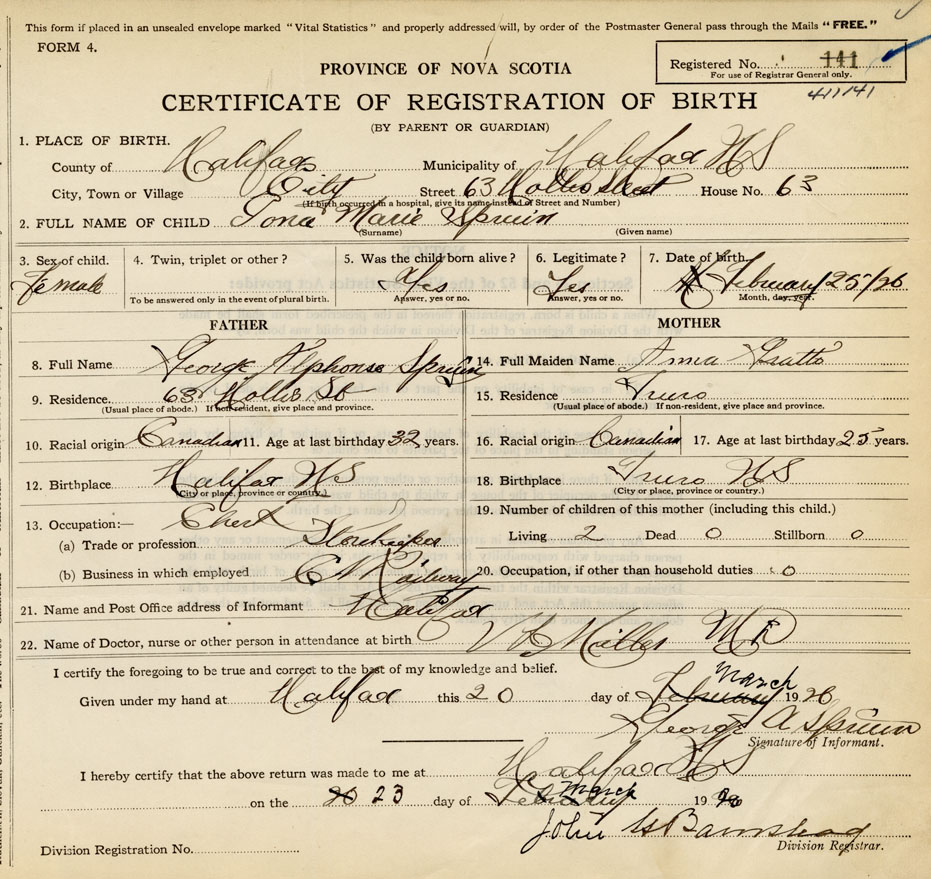 This form if placed in an unsealed envelope marked "Vital Statistics" and properly addressed will, by order of the Postmaster General pass through the Mails "FREE."
FORM 4.
Registered No. 141
For use of Registrar General only.
411141
PROVINCE OF NOVA SCOTIA
CERTIFICATE OF REGISTRATION OF BIRTH
(BY PARENT OR GUARDIAN)
1. PLACE OF BIRTH.
County of Halifax Municipality of Halifax NS
City, Town or Village City Street 63 Hollis Street House No. 63
(If birth occurred in a hospital, give its name instead of Street and Number)
2. FULL NAME OF CHILD Marie Spruin
(Surname) (Given name)
3. Sex of child. Female
4. Twin, triplet or other?
To be answered only in the event of plural birth.
5. Was the child born alive? Yes
Answer, yes or no.
6. Legitimate? Yes
Answer, yes or no.
7. Date of birth. February 25/26
Month, day, year.
FATHER
8. Full Name George Alphonse Spruin
9. Residence. 63 Hollis St
(Usual place of abode.) If non-resident, give place and province.
10. Racial origin Canadian 11. Age at last birthday 32 years.
12. Birthplace Halifax NS
(City or place, province or country.)
13. Occupation:—
(a) Trade or profession
(b) Business in which employed C N Railway
MOTHER
14. Full Maiden Name Anna Gratto
15. Residence Truro
(Usual place of abode.) If non-resident, give place and province.
16. Racial origin Canadian 17. Age at last birthday 25 years.
18. Birthplace Truro NS
(City or place, province or country.)
19. Number of children of this mother (including this child.)
Living 2 Dead 0 Stillborn 0
20. Occupation, if other than household duties 0
21. Name and Post Office address of Informant Halifax
22. Name of Doctor, nurse or other person in attendance at birth Miller
I certify the foregoing to be true and correct to the best of my knowledge and belief.
March
Given under my hand at Halifax this 20 day of February 1926
George A Spruin
Signature of Informant.
I hereby certify that the above return was made to me at Halifax NS
March
on the 20 23 day of February 1926
John Barnstead
Division Registrar.
Division Registration No.